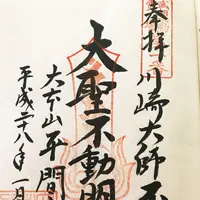 奉拝
川崎大師
大聖不動明
大本山平間
平成二十八年一月